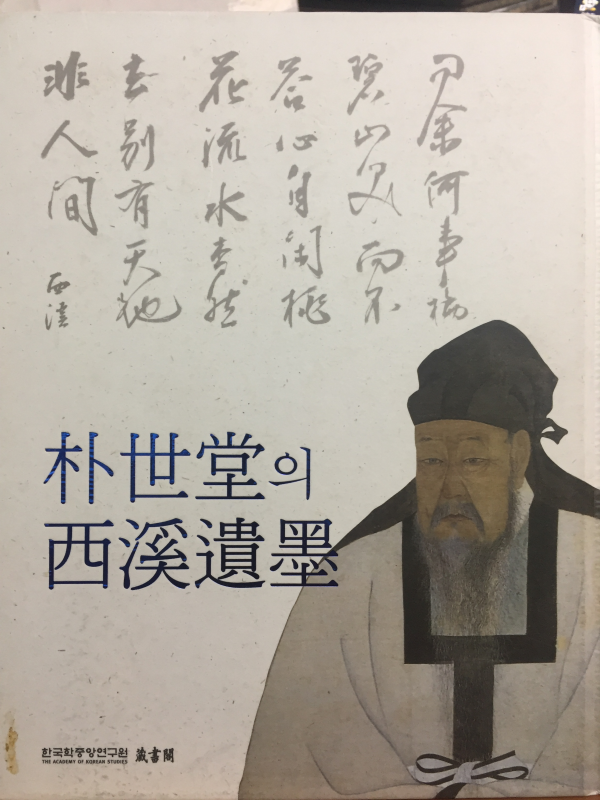 問余何事栖
碧山笑而不
答心自閑桃
花流水杳然
去別有天地
非人間
西溪
朴世堂의
西溪遺墨
한국학중앙연구원 藏書閣
THE ACADEMY OF KOREAN STUDIES